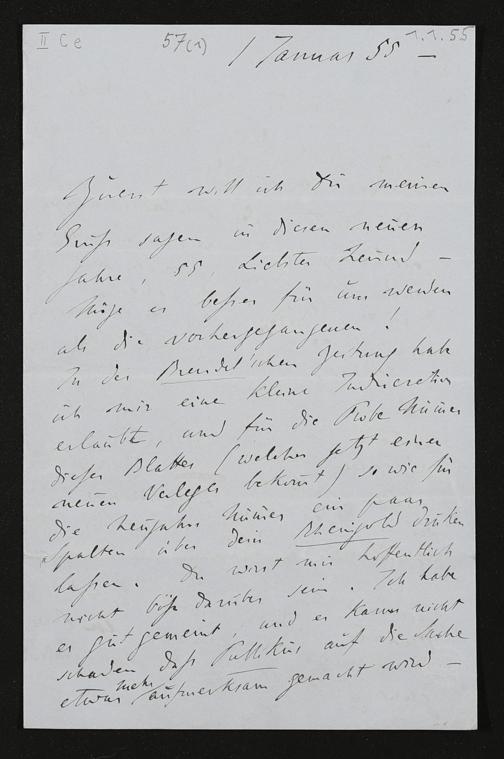 II Ce 57(1) 1.1.55
1 Januar 55 –
Zuerst will ich Dir meinen
Gruß sagen in diesem neuen
Jahre, 55, Liebster Freund –
Möge es besser für uns werden
als die vorhergegangenen!
In der Brendel'schen Zeitung hab
ich mir eine kleine Indiscretion
erlaubt, und für die Probe Numer
dieses Blattes (welches jetzt einen
neuen Verleger bekomt) so wie für
die Neujahrs Numer ein paar
Spalten über dein Rheingold druken
lassen. Du wirst mir hoffentlich
nicht böse darüber sein. Ich habe
es gut gemeint, und es kann nicht
schaden daß Publikus auf die Sache
etwas mehr aufmerksam gemacht wird –